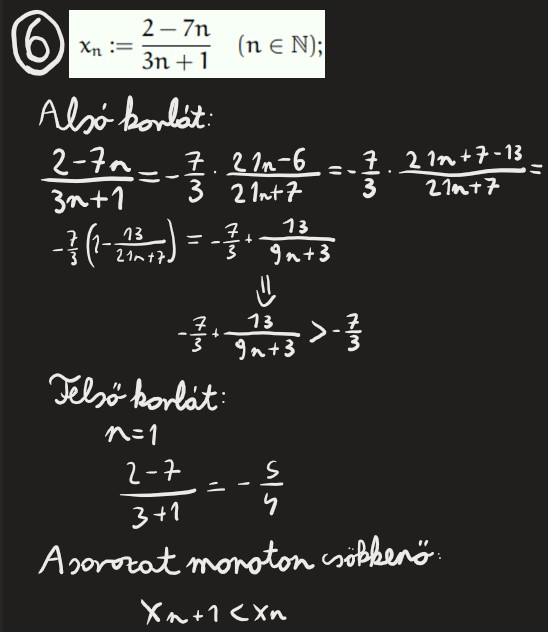 6 xₙ := (2 − 7n)/(3n + 1) (n ∈ ℕ);
Alsó korlát:
(2-7n)/(3n+1) = -7/3 · (21n-6)/(21n+7) = -7/3 · (21n+7-13)/(21n+7) =
-7/3 (1 - 13/(21n+7)) = -7/3 + 13/(9n+3)
⇓
-7/3 + 13/(9n+3) > -7/3
Felső korlát:
n=1
(2-7)/(3+1) = -5/4
A sorozat monoton csökkenő:
Xn+1 < Xn